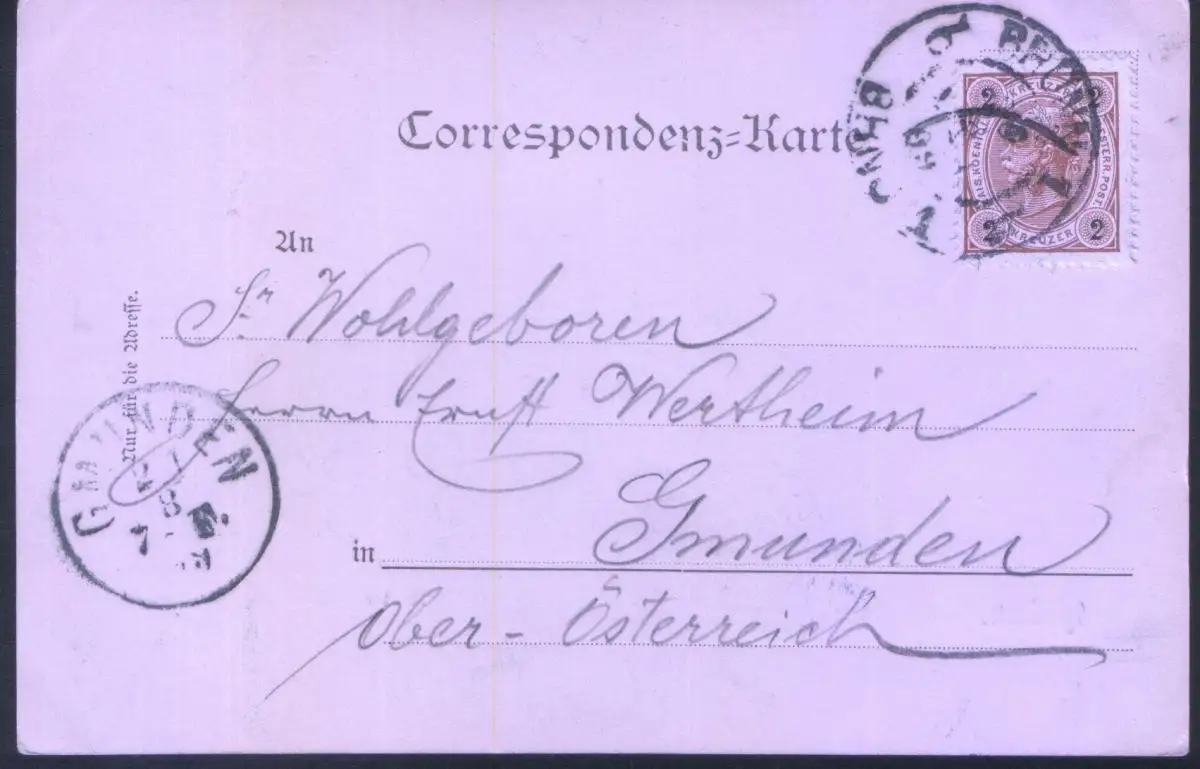 Correspondenz-Karte
2 KREUZER 2
KAIS. KOENIGL. OESTERR. POST.
2 KREUZER 2
BRÜNN
BRNO
An
Sr Wohlgeboren
Herrn Ernst Wertheim
in Gmunden
Ober-Österreich
Nur für die Adresse.
GMUNDEN
8
7